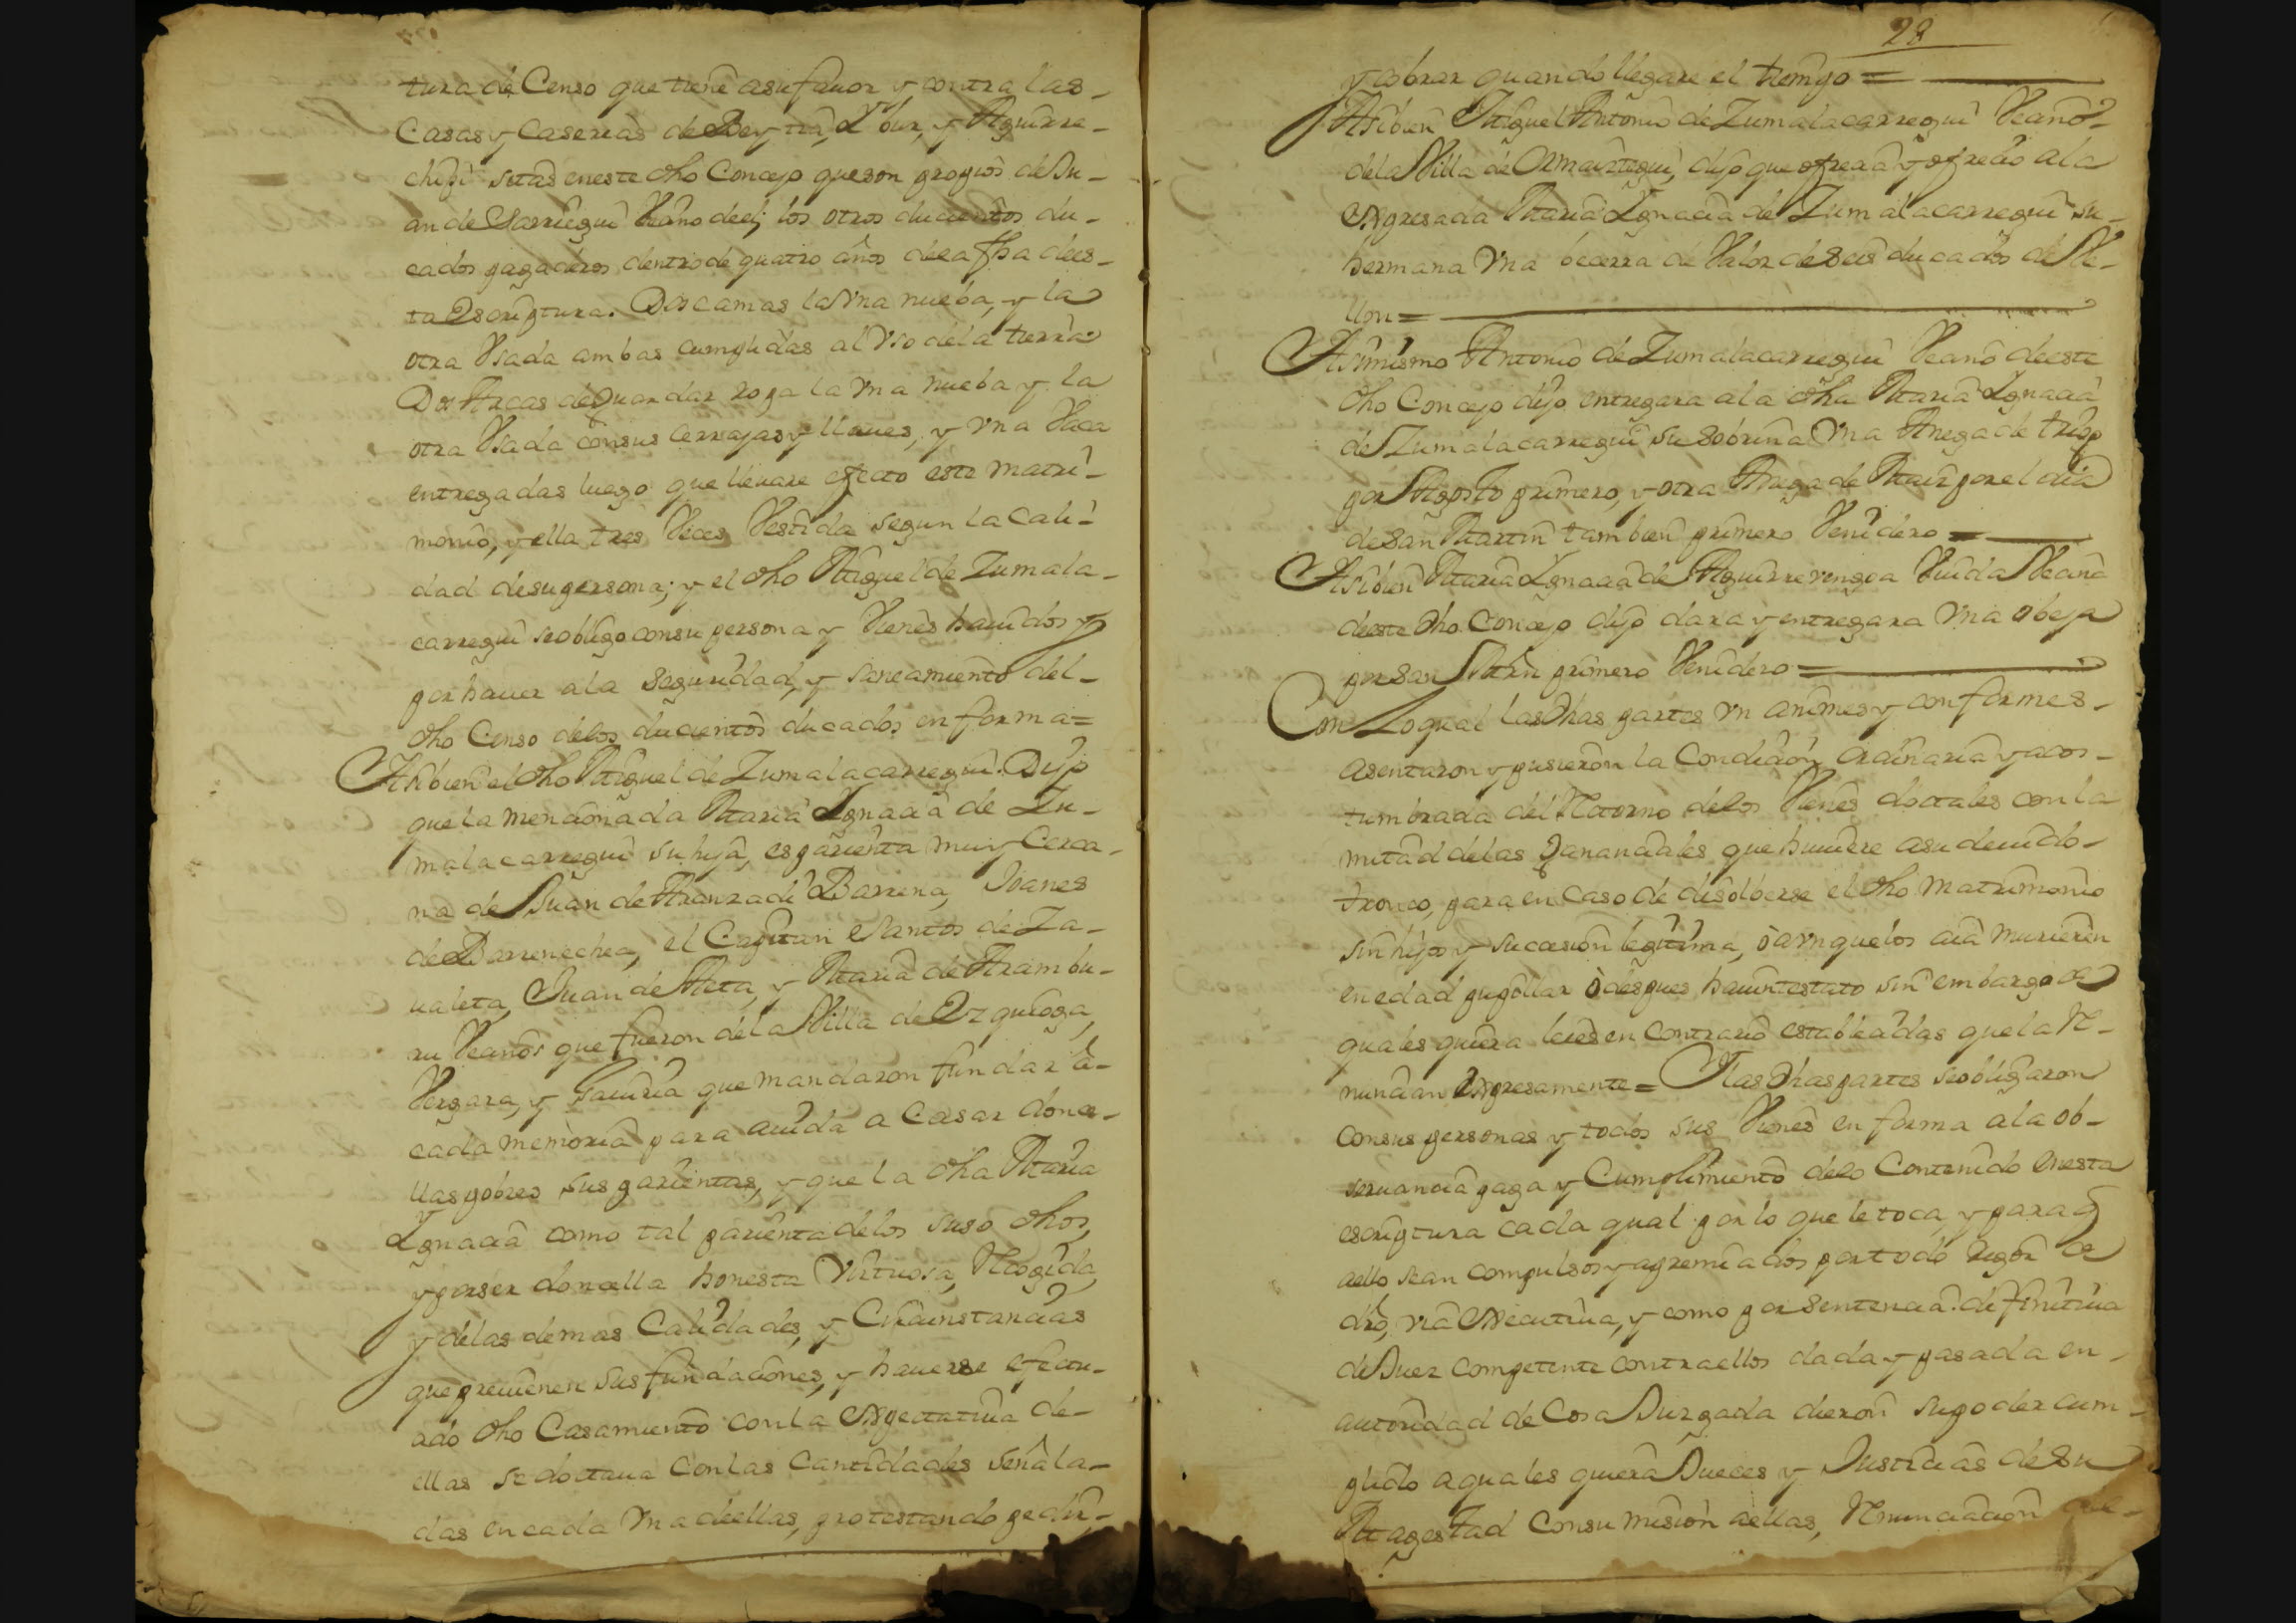 tura de Censo que tiene a su fauor y contra las
Casas y Caserias de Beytia, y Aguirre
chipi sitas en este dho Concejo que son propios de Ju-
an de Sarriegui Veçino de el; los otros ducientos du-
cados pagaderos dentro de quatro años de la fha de es-
ta Escriptura. Dos camas la vna nueba, y la
otra Vsada ambas cumplidas al Vso de la tierra
Dos Arcas de guardar ropa la vna nueba y la
otra Vsada con sus Cerrajas y llaues, y vna Vaca
entregadas luego que lleuare efecto este matri-
monio, y ella tres Veces Vestida segun la Cali-
dad de su persona; y el dho Miguel de Zumala-
carregui se obligo con su persona y Vienes hauidos y
por hauer a la Seguridad, y saneamiento del
dho Censo de los ducientos ducados en forma=
Asibien el dho Miguel de Zumalacarregui. Dijo
que la mencionada Maria Ignacia de Zu-
malacarregui su hija, es parienta muy Cerca-
na de Juan de Aranzadi Barrena, Joanes
de Barrenechea, el Capitan Santos de Za-
ualeta, Juan de Aeta, y Maria de Arambu-
ru Veçinos que fueron de la Villa de Ezquioga,
Vergara, y Gauiria que mandaron fundar a
cada memoria para auida a Casar donce-
llas pobres sus parientas, y que la dha Maria
Ignacia como tal parienta de los suso dhos,
y por ser doncella honesta Virtuosa, Recogida,
y de las demas Calidades, y Circunstancias
que preuienen sus fundaciones, y hauerse efectu-
ado dho Casamiento con la expectatiua de
ellas se doctaua con las Cantidades señala-
das en cada vna de ellas, protestando pedir,
28
y cobrar quando llegare el tiempo =
Asibien Miguel Antonio de Zumalacarregui Veçino
de la Villa de Ormaiztegui, dijo que ofrecia y ofrecio a la
expresada Maria Ignacia de Zumalacarregui su
hermana vna becerra de Valor de seis ducados de Ve-
llon =
Asimismo Antonio de Zumalacarregui Veçino de este
dho Concejo dijo entregara a la dha Maria Ignacia
de Zumalacarregui su Sobrina vna Anega de trigo
por Agosto primero, y otra Anega de Maiz por el dia
de san Martin tambien primero Venidero =
Asibien Maria Ignacia de Aguirrevengoa Viuda Veçina
de este dho Concejo dijo dara y entregara vna obeja
por san Mrn primero Venidero =
Con lo qual las dhas partes vnanimes y conformes
asentaron y pusieron la Condicion ordinaria y acos-
tumbrada del Retorno de los Vienes doctales con la
mitad de las Gananciales que huuiere a su deuido
tronco, para en caso de disolberse el dho matrimonio
sin hijos y sucesion legitima, o aunque los aia murieren
en edad pupillar o despues hauintestato sin embargo de
quales quiera leies en contrario establecidas que la Re-
nuncian expresamente = Y las dhas partes se obligaron
con sus personas y todos sus Vienes en forma a la ob-
seruancia paga y Cumplimiento de lo Contenido en esta
escriptura cada qual por lo que le toca, y para q
a ello sean compulsos y apremiados por todo rigor de
dro, via executiua, y como por sentencia difinitiua
de Juez competente contra ellos dada y pasada en
autoridad de Cosa Juzgada dieron su poder cum-
plido a quales quiera Jueces y Justicias de Su
Magestad con sumision a ellas, Renunciacion que-